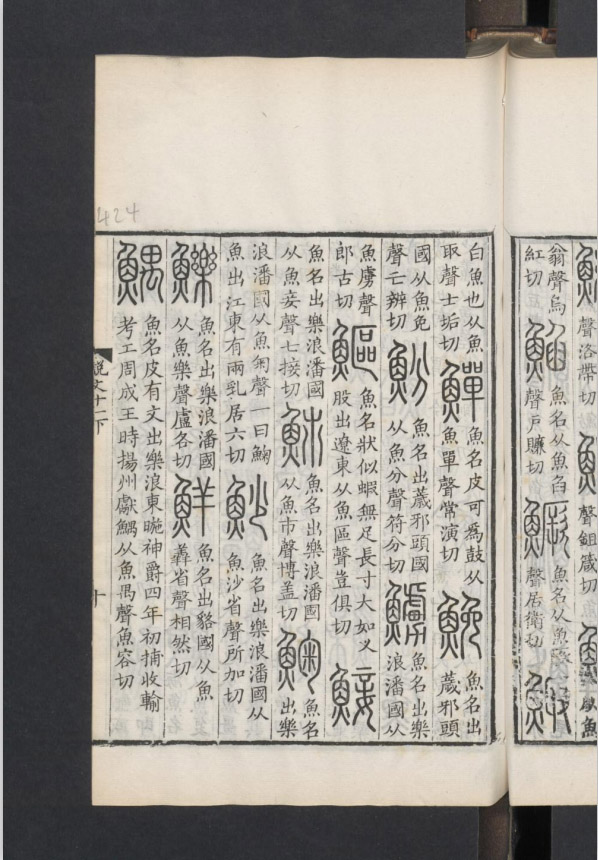 聲洛帶切
聲鉏箴切
从魚
翁聲烏
紅切
魚名从魚臽
聲戶賺切
鱖
魚名从魚厥
聲居衛切
鯫
白魚也从魚
取聲士垢切
鱓
魚名皮可爲鼓从
魚單聲常演切
鮸
魚名出
薉邪頭
國从魚免
聲亡辨切
魵
魚名出薉邪頭國
从魚分聲符分切
鱸
魚名出樂
浪潘國从
魚虜聲
郎古切
鰸
魚名狀似蝦無足長寸大如叉
股出遼東从魚區聲豈俱切
鯜
魚名出樂浪潘國
从魚妾聲七接切
䰽
魚名出樂浪潘國
从魚巿聲博蓋切
䱡
魚名
出樂
浪潘國从魚匊聲一曰䱡
魚出江東有兩乳居六切
魦
魚名出樂浪潘國从
魚沙省聲所加切
鱳
魚名出樂浪潘國
从魚樂聲盧各切
鮮
魚名出貉國从魚
羴省聲相然切
鰅
魚名皮有文出樂浪東暆神爵四年初捕收輸
考工周成王時揚州獻鰅从魚禺聲魚容切
說文十一下
十
424